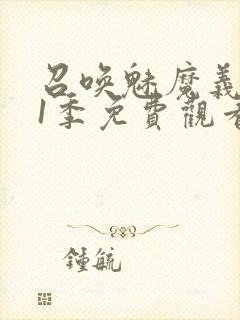 召喚魅魔義
1季免費觀看
鍾毓